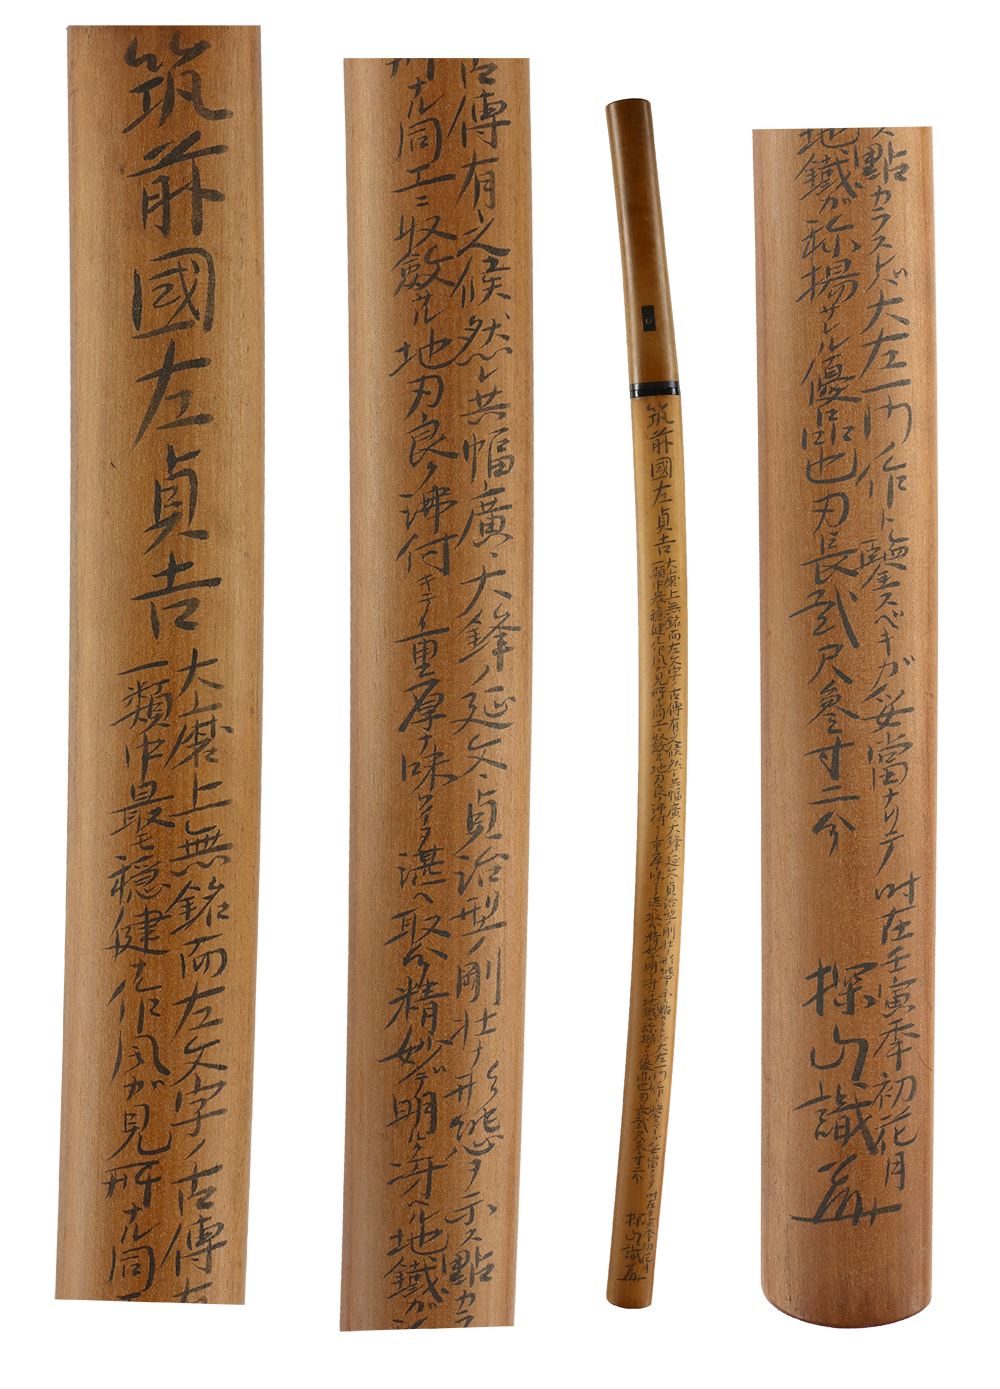 筑前國左貞吉
大磨上無銘而左文字ノ古傳有之候然レ共幅廣ニ大鋒ノ延文ニ貞治型ノ剛壮ナ形態ヲ示ス點カラスレバ大左一門ノ作ト鑒スベキガ妥當ナリテ
一類中最モ穏健ナ作風が見所ナル同工ニ収斂サル地刃良ク沸付キテイ重厚ナ味ワイヲ湛ヘ取分精妙デ明ルク冴ヘル地鐵が称揚サレル優品也刃長弐尺參寸二分
時在壬寅季初花月
探山識